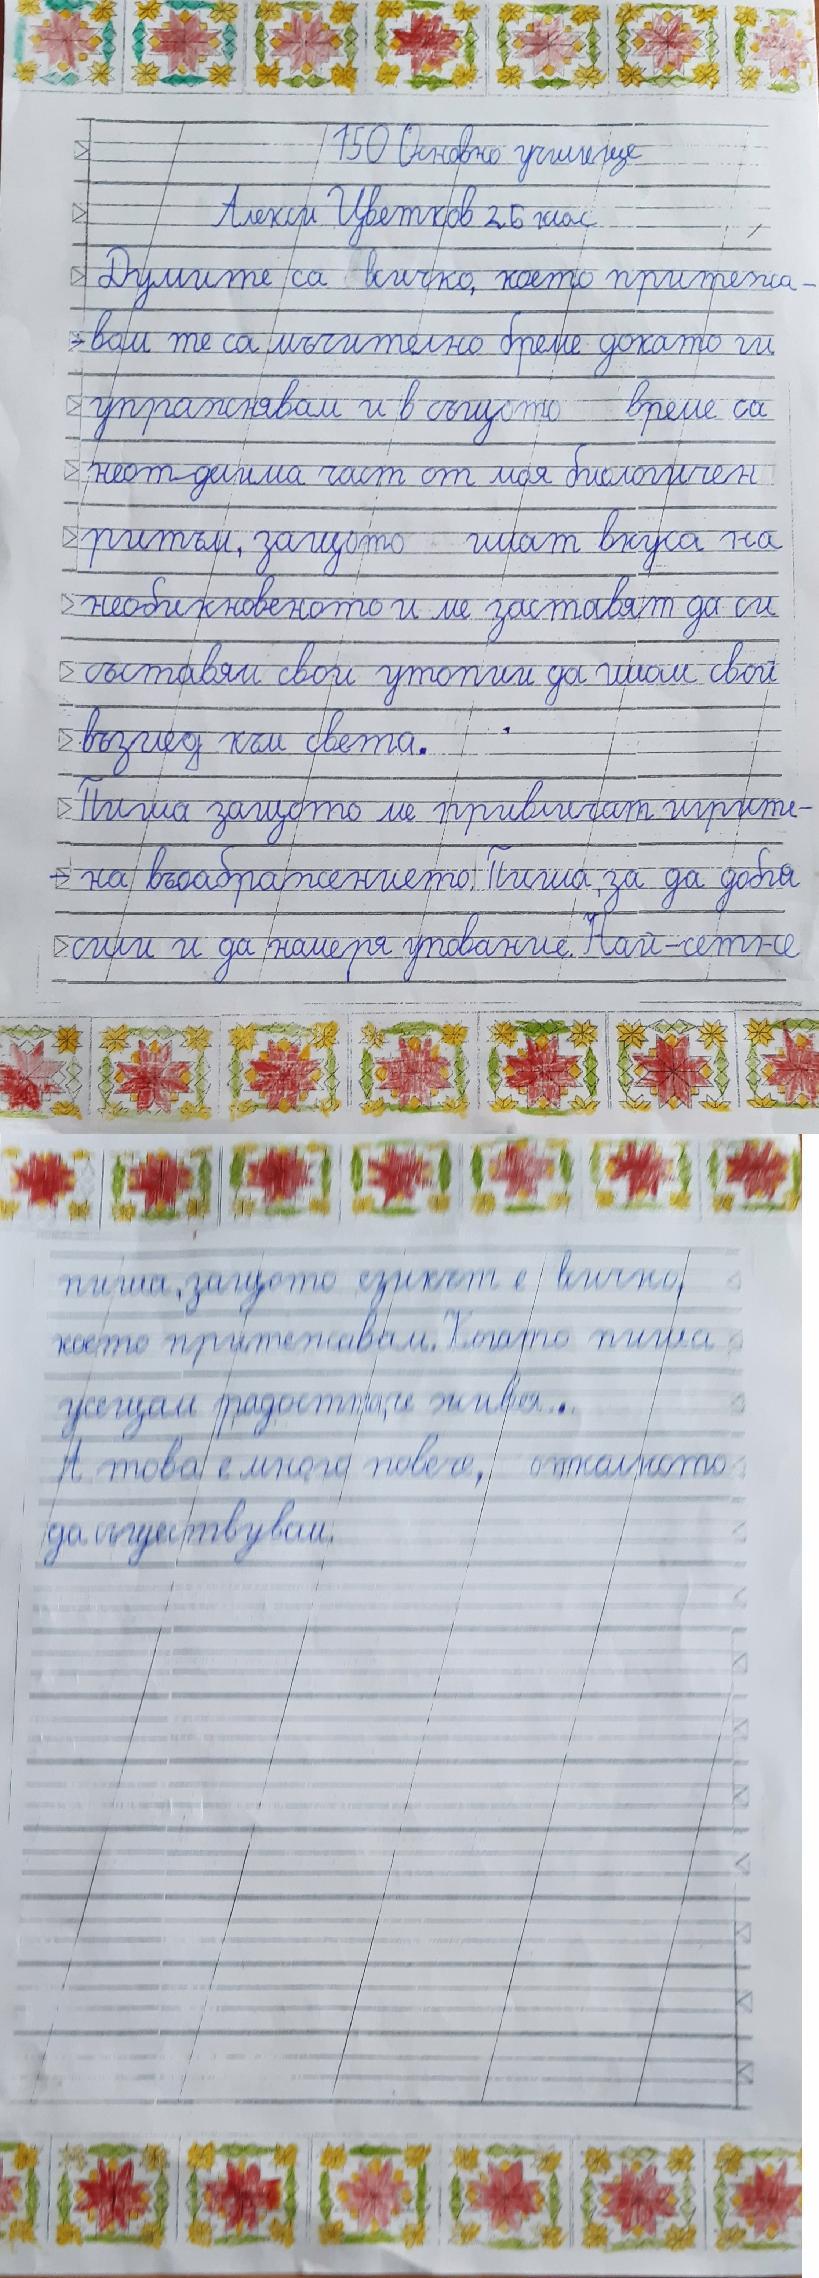 150 Основно училище
Алекси Цветков 2 б клас
Думите са всичко, което притежа-
вам те са мъчително бреме докато ги
упражнявам и в същото време са
неот делима част от моя биологичен
ритъм, защото имат вкуса на
необикновеното и ме заставят да си
съставям свои утопии да имам свой
възглед към света.
Пиша защото ме привличат игрите-
на въоабражението. Пиша, за да добия
сили и да намеря упование. Най-сетне
пиша, защото езикът е всичко,
което притежавам. Когато пиша
усещам радостта, че живея...
А това е много повече, отколкото
да съществувам.